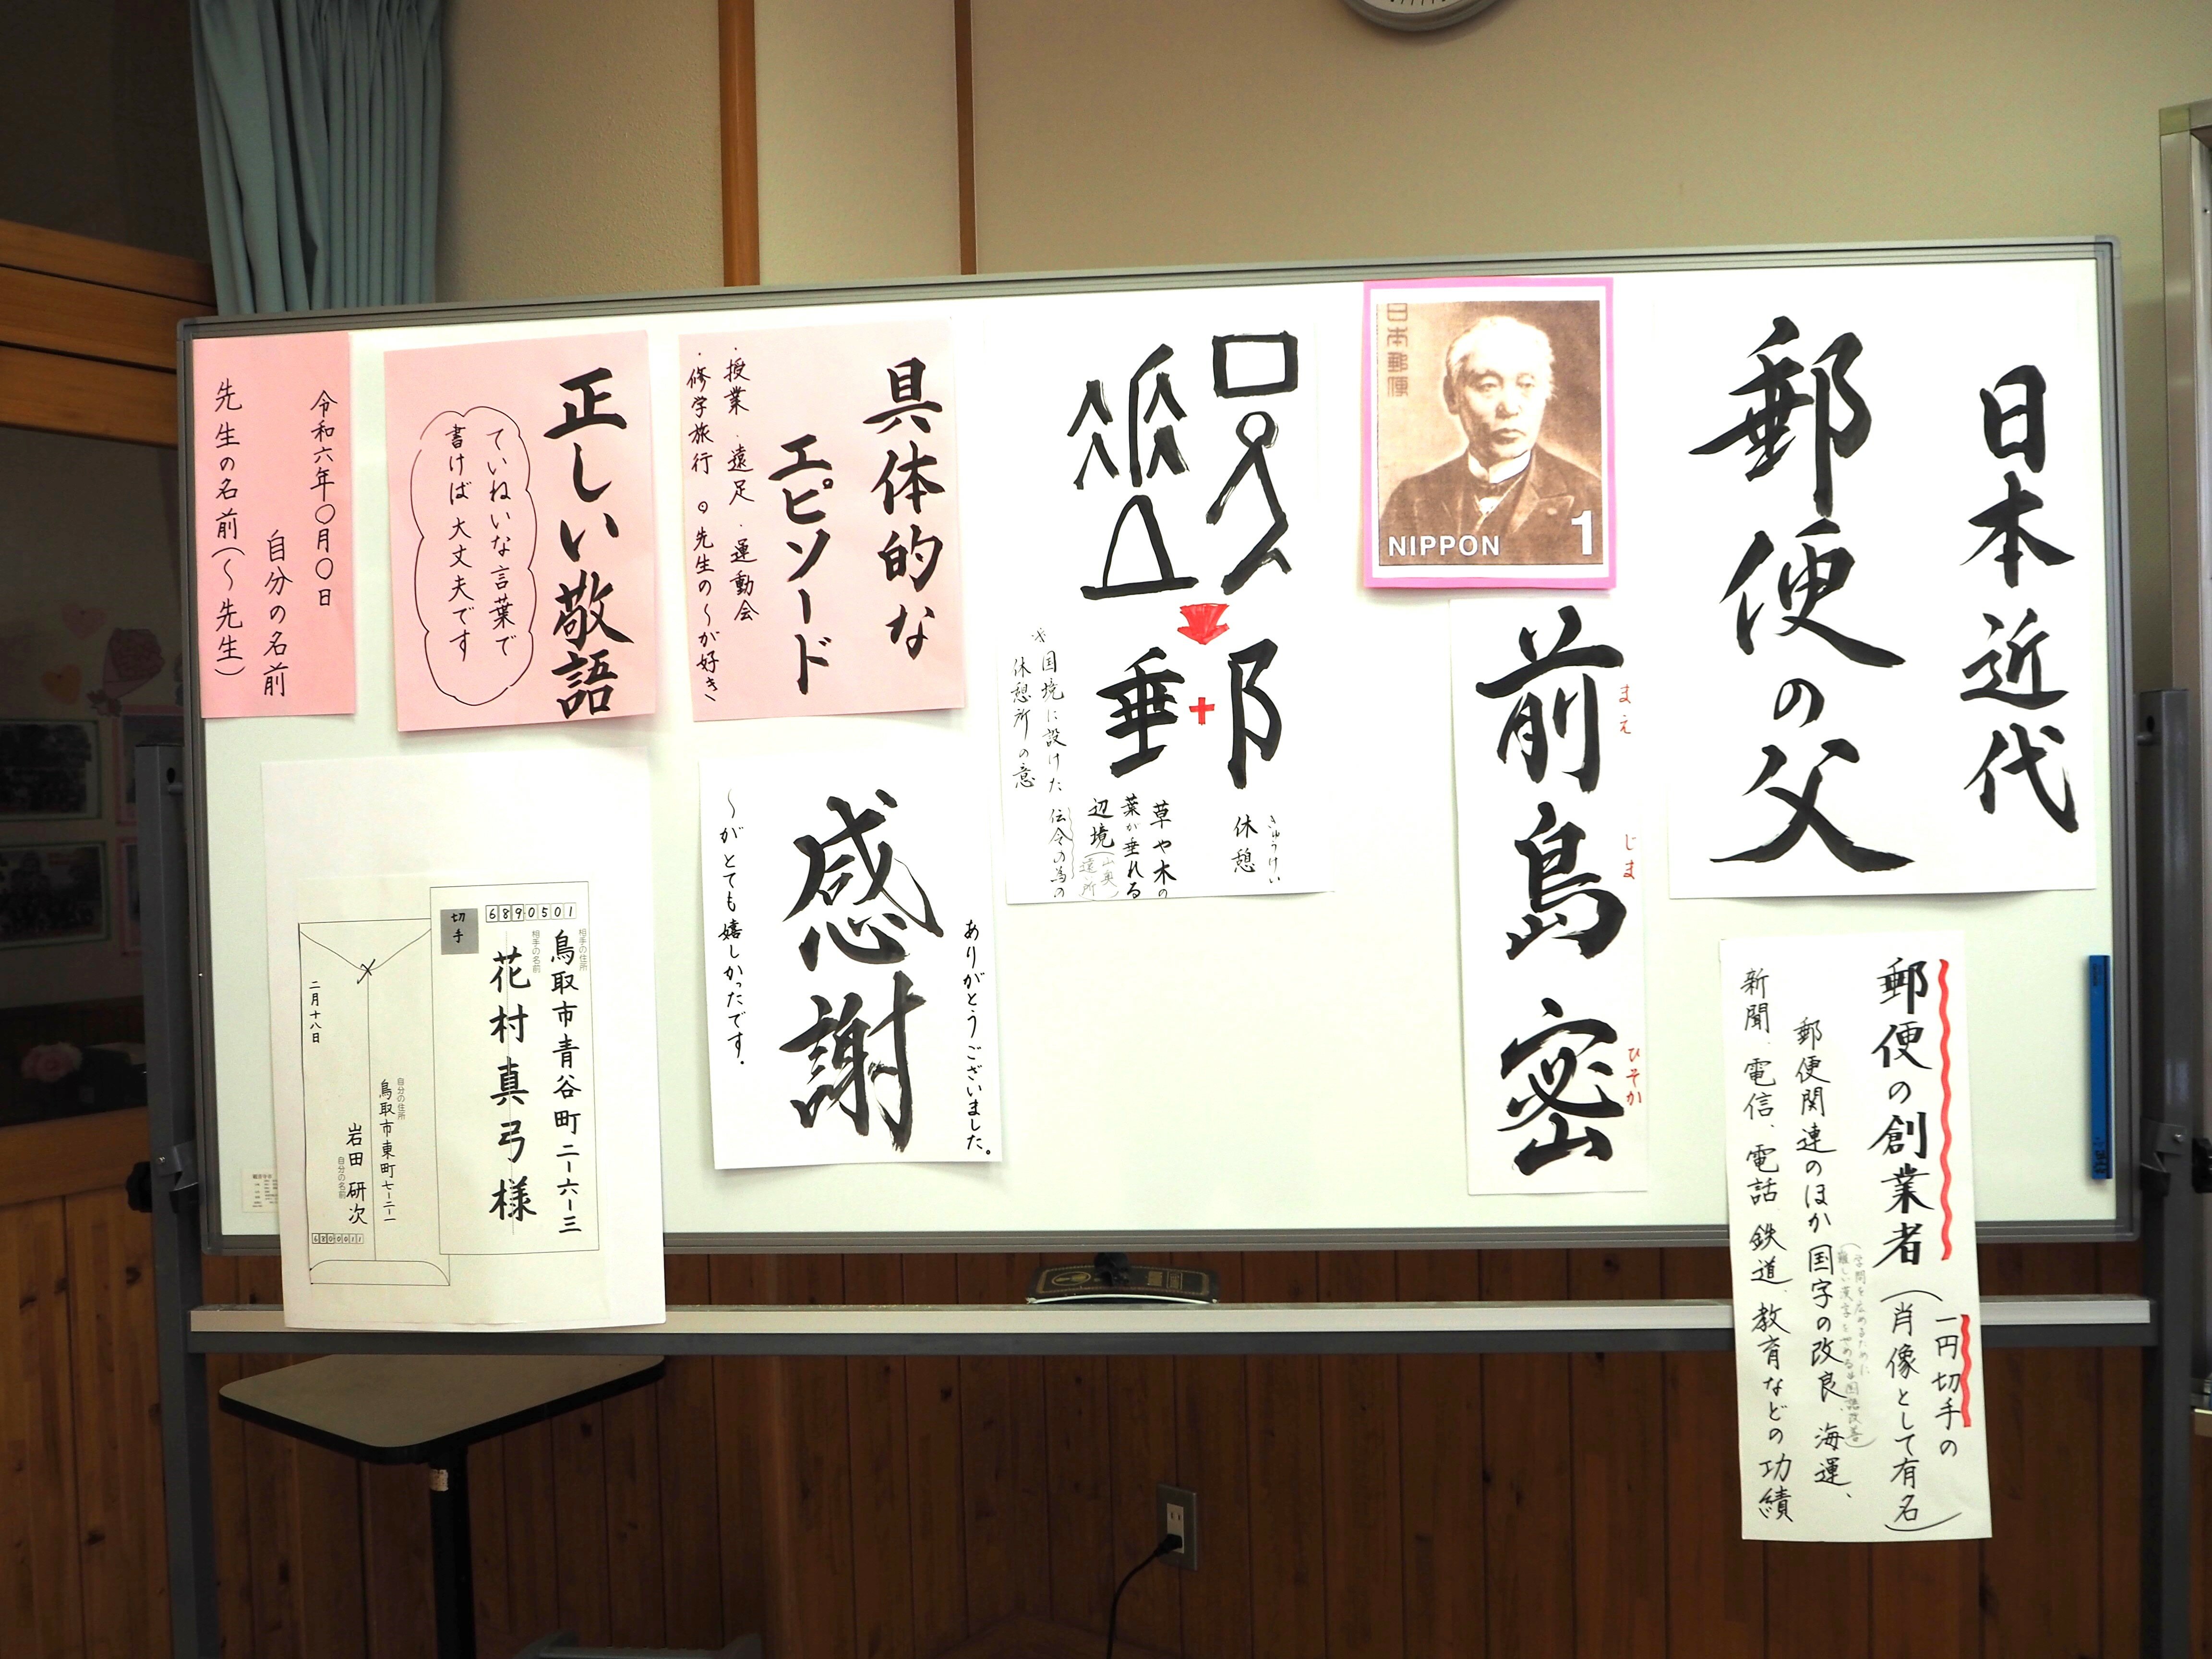 日本近代
郵便の父
日本郵便
NIPPON 1
前島 密
まえ
じま
ひそか
郵便の創業者
(一円切手の
肖像として有名)
郵便関連のほか 国字の改良、海運、
(学問を広めるために
難しい漢字をやめる
新聞、電信、電話 鉄道、教育などの功績
阝
+
垂
きゅうけい
休憩
草や木の
葉が垂れる
辺境
(山奥
遠所)
※国境に設けた 伝令の為の
休憩所の意
具体的な
エピソード
・授業 ・遠足 ・運動会
・修学旅行 ◎先生の〜が好き
ありがとうございました。
感謝
〜がとても嬉しかったです。
正しい敬語
ていねいな言葉で
書けば大丈夫です
令和六年〇月〇日
自分の名前
先生の名前(〜先生)
6890501
切手
相手の住所
鳥取市青谷町二-六-三
相手の名前
花村真弓様
自分の住所
鳥取市東町七-二一
岩田研次
自分の名前
二月十八日
6800011